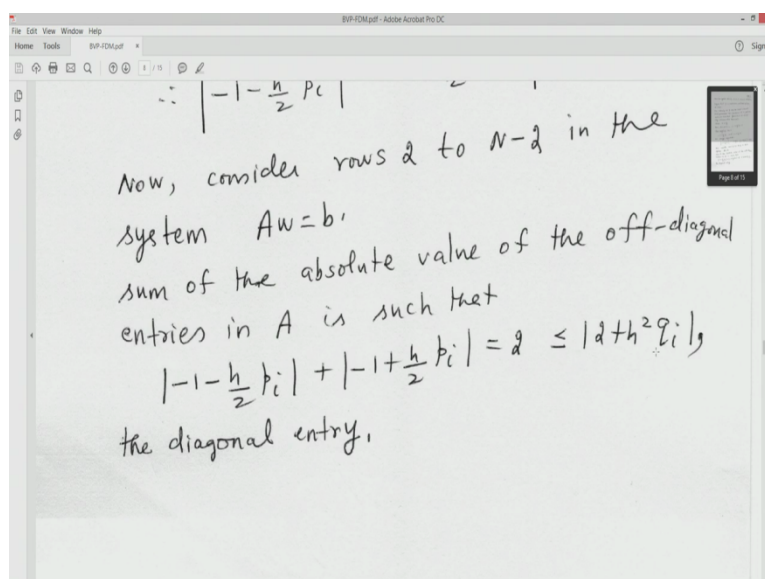 BVP-FDM.pdf - Adobe Acrobat Pro DC
File Edit View Window Help
Home Tools BVP-FDM.pdf × Sign
/ 15
∴ |-1-h/2 Pi|
Now, consider rows 2 to N-2 in the
system Aw=b.
sum of the absolute value of the off-diagonal
entries in A is such that
|-1-h/2 pi| + |-1+h/2 pi| = 2 ≤ |2+h²qi|,
the diagonal entry.
Page 8 of 15